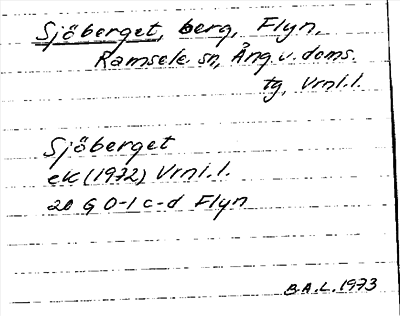 Sjöberget, berg, Flyn,
Ramsele sn, Ång. v. doms.
tg, Vrnl.l.
Sjöberget
ek (1972) Vrnl.l.
20 G 0-1 c-d Flyn
B.A.L. 1973